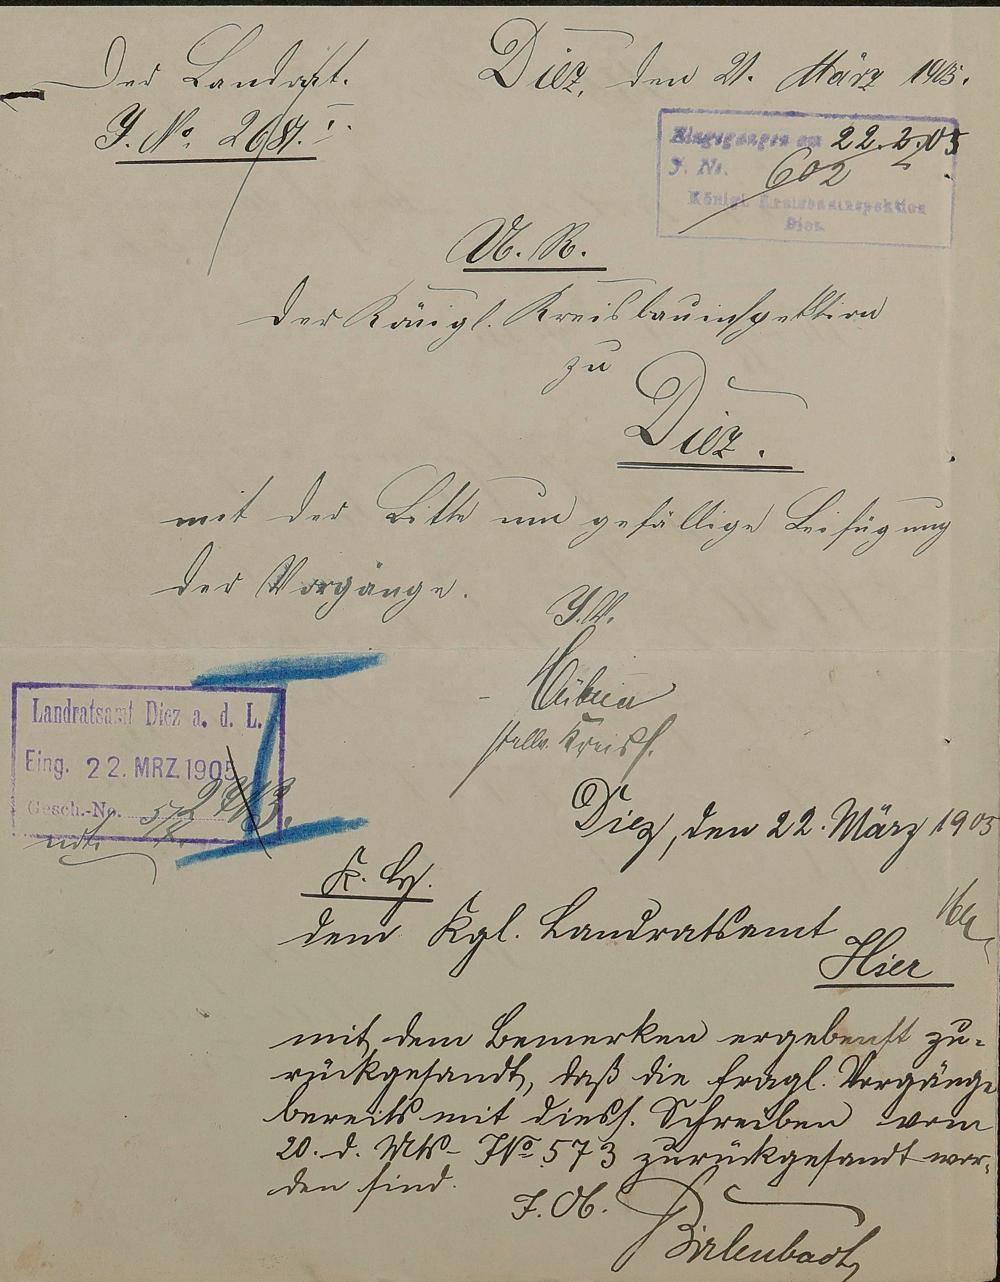 Der Landrat.
Diez, den 21. März 1905.
J. No. 2681. I.
Eingegangen am 22.3.05
J. Nr. 602
Königl. Kreisbauinspektion
Diez.
U. R.
der Königl. Kreisbauinspektion
zu
Diez.
mit der Bitte um gefällige Beifügung
der Vorgänge.
J.V.
stellv. Kreisd.
Landratsamt Diez a. d. L.
Eing. 22. MRZ 1905
Gesch.-No.
Diez, den 22. März 1905
K. H.
dem Kgl. Landratsamt
Hier
mit dem Bemerken ergebenst zu-
rückgesandt, daß die fragl. Vorgänge
bereits mit diess. Schreiben vom
20. d. Mts. J No 573 zurückgesandt wor-
den sind.
Birlenbach